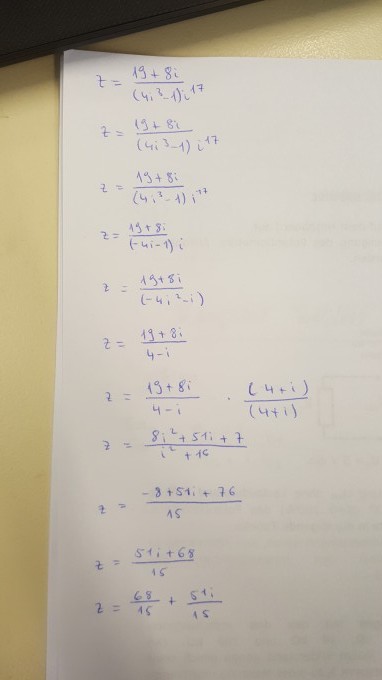 z = \frac{19+8i}{(4i^3-1)i^{17}}
z = \frac{19+8i}{(4i^3-1)i^{17}}
z = \frac{19+8i}{(4i^3-1)i^{17}}
z = \frac{19+8i}{(-4i-1)i}
z = \frac{19+8i}{(-4i^2-i)}
z = \frac{19+8i}{4-i}
z = \frac{19+8i}{4-i} \cdot \frac{(4+i)}{(4+i)}
z = \frac{8i^2+51i+7}{i^2+16}
z = \frac{-8+51i+76}{15}
z = \frac{51i+68}{15}
z = \frac{68}{15} + \frac{51i}{15}